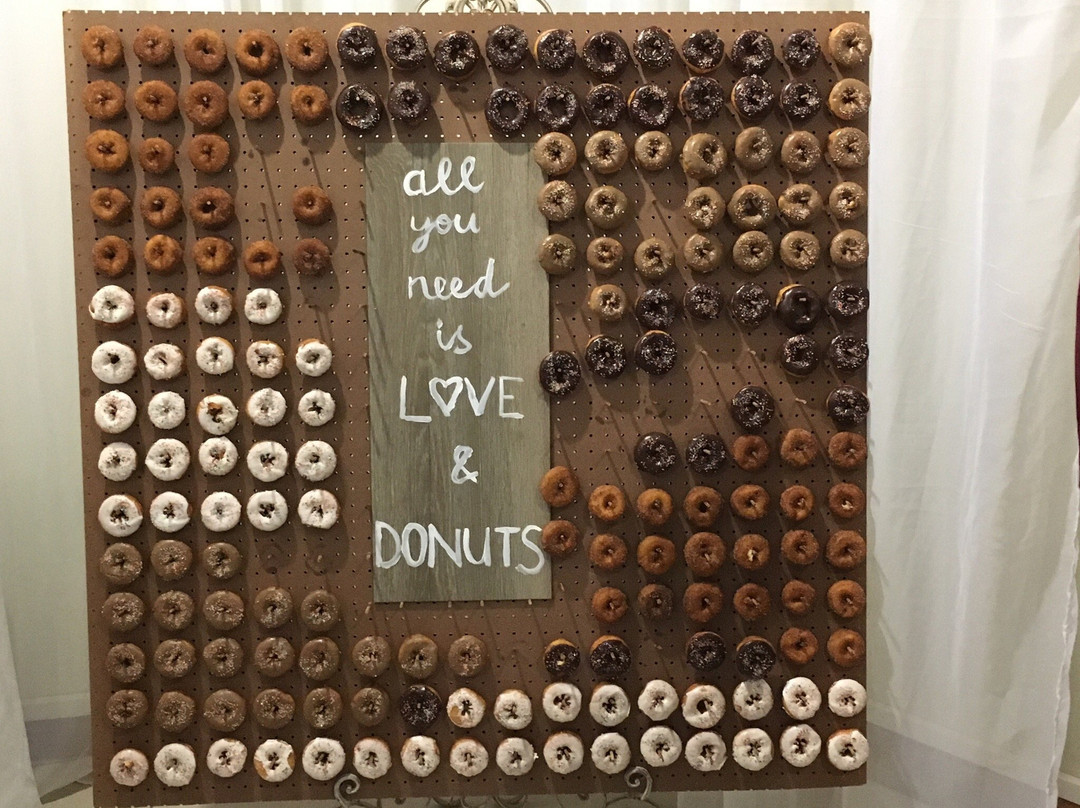 all
you
need
is
LOVE
&
DONUTS